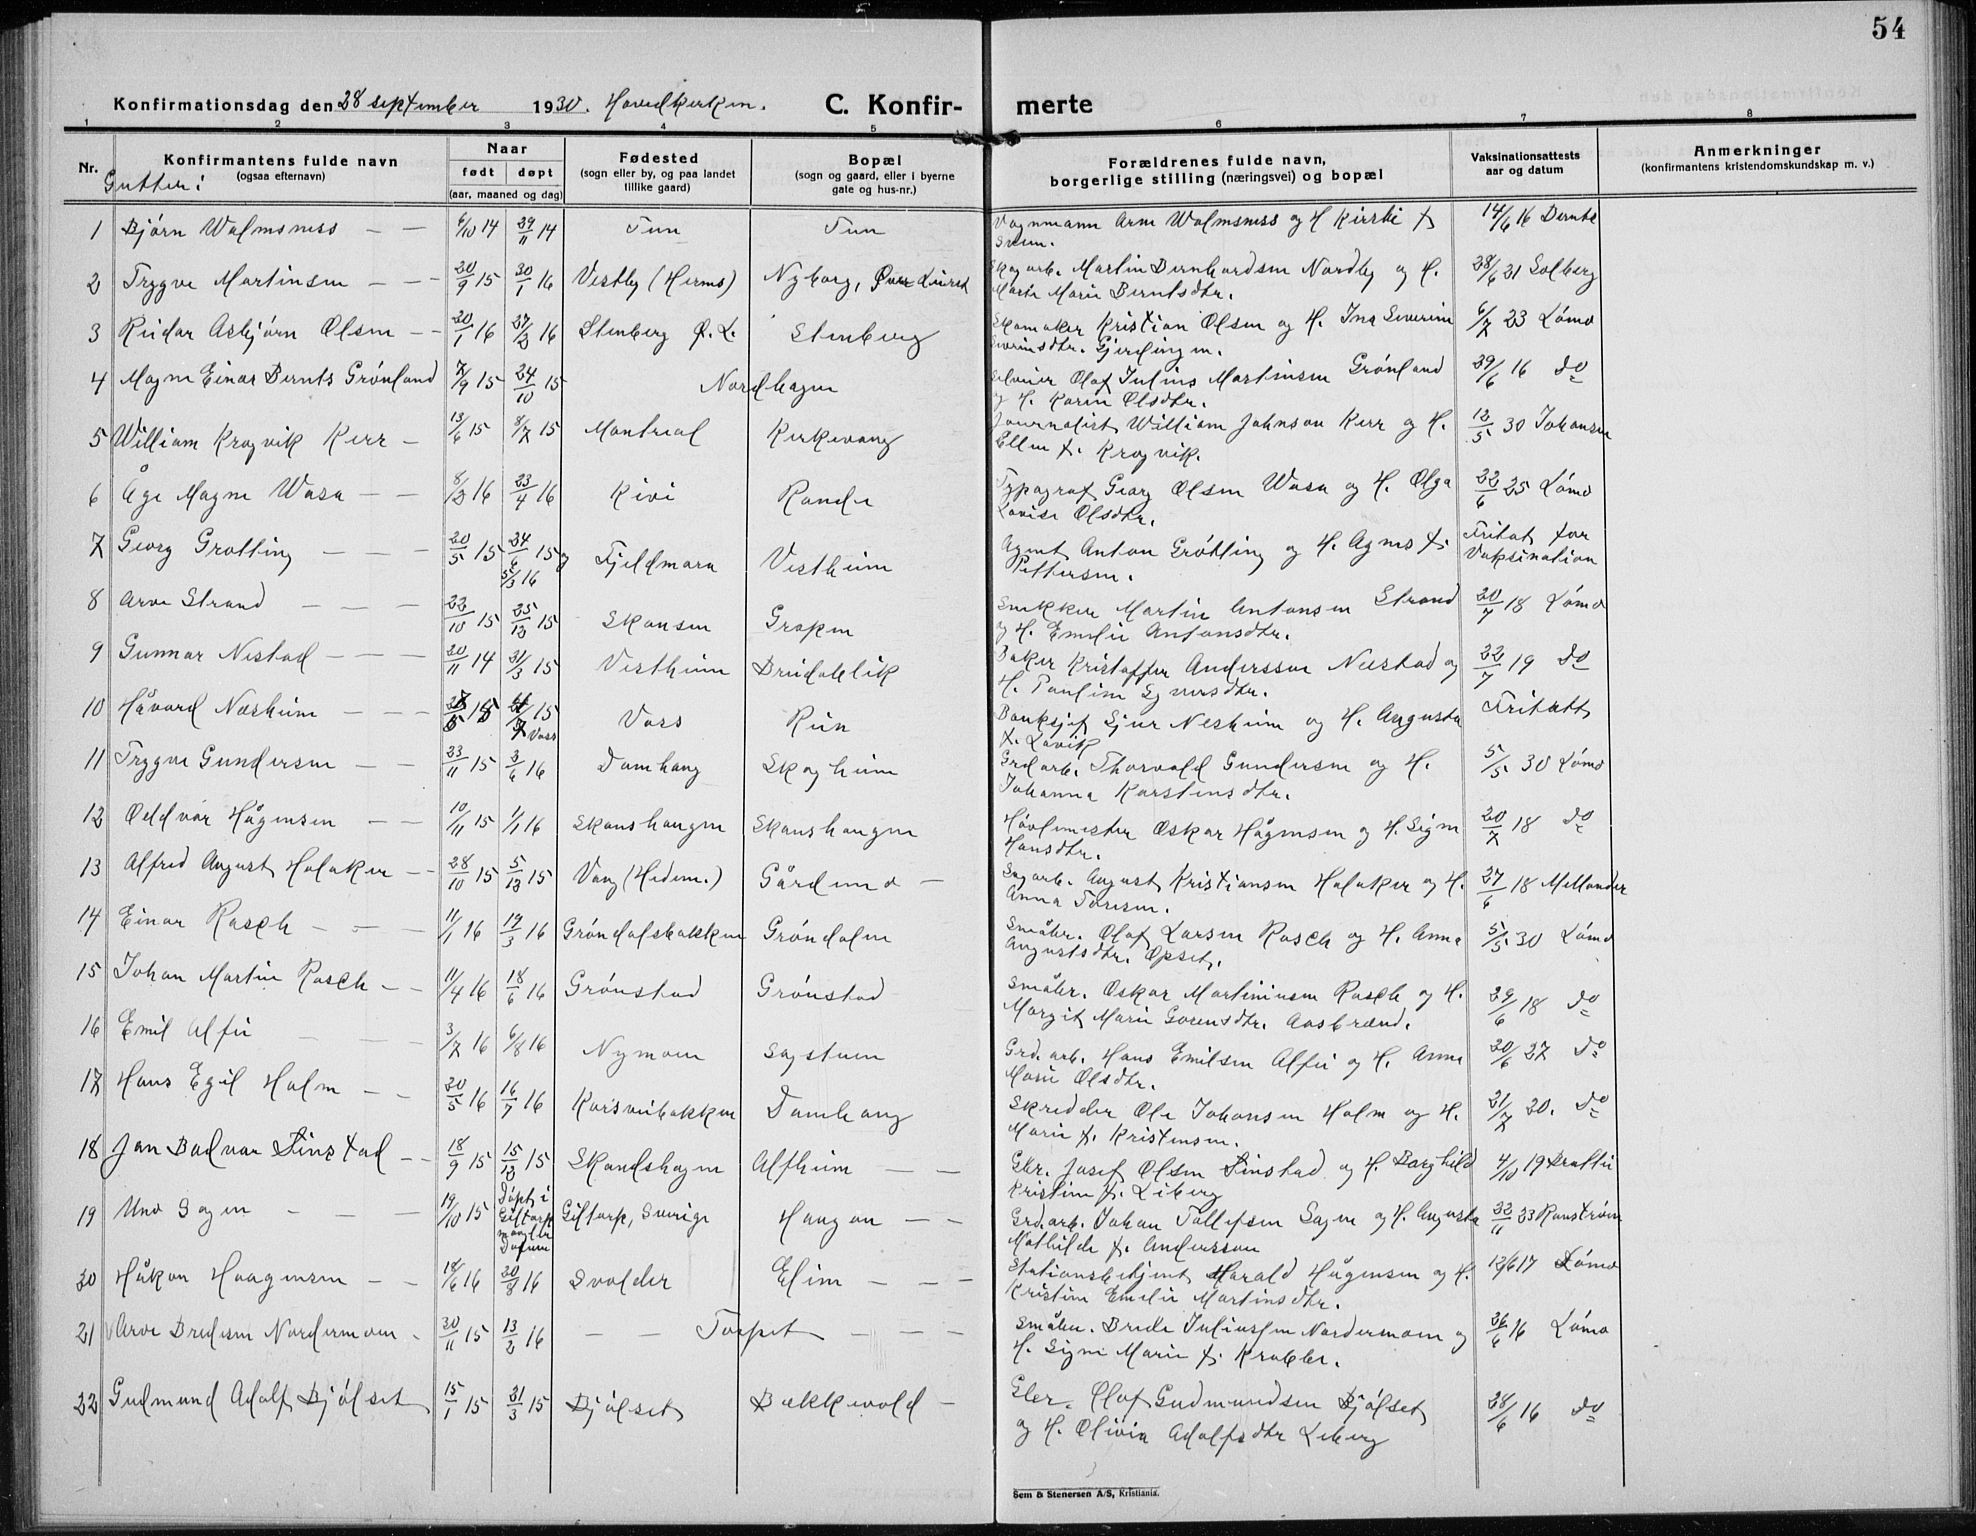 54
Konfirmationsdag den 28 september 1930. Hovedkirken. C. Konfirmerte
1 2 3 4 5 6 7 8
Nr. Konfirmantens fulde navn (ogsaa efternavn) Naar født døpt (aar, maaned og dag) Fødested (sogn eller by, og paa landet tillike gaard) Bopæl (sogn og gaard, eller i byerne gate og hus-nr.) Forældrenes fulde navn, borgerlige stilling (næringsvei) og bopæl Vaksinationsattests aar og datum Anmerkninger (konfirmantens kristendomskundskap m. v.)
Gutter:
1 Bjørn Walmsness — — 6/10 14 29/11 14 Tun Tun Vognmann Arne Walmsness og H. Kirsti f. 14/6 16 Bernts
2 Trygve Martinsen — — 20/9 15 30/1 16 Vestby (Hernes) Nyborg, Øvre Leiret Skogarb. Martin Bernhardsen Nordby og H. 28/6 21 Solberg
Marte Marie Berntsdtr.
3 Reidar Asbjørn Olsen — — 20/1 16 27/2 16 Stenberg Ø. L. Stenberg Skomaker Kristian Olsen og H. Ina Severine 6/7 23 Lømo
Severinsdtr. Gjerdingen.
4 Magne Einar Bernts Grønland 7/9 15 24/10 15 Nordhagen Olaf Julius Martinsen Grønland 29/6 16 do
og H. Karen Olsdtr.
5 William Krogvik Kerr — 13/6 15 8/7 15 Montreal Kirkevang Journalist William Johnson Kerr og H. 12/5 30 Johansen
Ellen f. Krogvik.
6 Åge Magne Wasa — — 8/2 16 23/4 16 Kivi Rande Typograf Georg Olsen Wasa og H. Olga 22/6 25 Lømo
Lovise Olsdtr.
7 Georg Grøtting — — — 20/5 15 24/6 15 og 5/3 16 Fjeldmora Vestheim Agent Anton Grøtting og H. Agnes f. Fritat for
Pettersen. Vaksination
8 Arve Strand — — — 22/10 15 25/12 15 Skansen Gropen Snekker Martin Antonsen Strand 20/7 18 Lømo
og H. Emelie Antonsdtr.
9 Gunnar Nestad — — — 20/11 14 31/3 15 Vestheim Breidablik Baker Kristoffer Anderssen Nestad og 22/7 19 do
H. Pauline Syversdtr.
10 Håvard Nesheim — — — 15 15 Voss Voss Rein Banksjef Sjur Nesheim og H. Augusta Fritatt
f. Lavik
11 Trygve Gundersen — — 23/11 15 3/6 16 Damhaug Skogheim Grd.arb. Thorvald Gundersen og H. 5/5 30 Lømo
Johanna Karstensdtr.
12 Oddvar Hågensen — — 10/11 15 1/1 16 Skanshaugen Skanshaugen Høvlemester Oskar Hågensen og H. Signe 20/7 18 do
Hansdtr.
13 Alfred August Holaker — — 28/10 15 5/12 15 Vang (Hedem.) Gårdemo — Sagarb. August Kristiansen Holaker og H. 27/6 18 Mellander
Anna Toresen.
14 Einar Rasch — — — 11/1 16 19/3 16 Grøndalsbakken Grøndalen Småbr. Olaf Larsen Rasch og H. Anna 5/5 30 Lømo
Augustsdtr. Opset.
15 Johan Martin Rasch — — 11/4 16 18/6 16 Grønstad Grønstad Småbr. Oskar Martiniusen Rasch og H. 29/6 18 do
Margit Marie Gorensdtr. Aasbrænd.
16 Emil Alfei — — — 3/7 16 6/8 16 Nymoen Sagstuen Grd.arb. Hans Emilsen Alfei og H. Anna 20/6 27 do
Marie Olsdtr.
17 Hans Egil Holm — — 20/5 16 16/7 16 Korsveibakken Damhaug Skredder Ole Johansen Holm og H. 21/7 20. do
Marie f. Kristensen.
18 Jan Bodvar Finstad — — 18/9 15 15/12 15 Skandshagen Alfheim — — Gbr. Josef Olsen Finstad og H. Borghild 4/10 19 Brattli
Kristine f. Liberg
19 Uno Sagen — — — 19/10 15 Døpt i Giltorp mangler Datum Giltorp, Sverige Haugan — — Grd.arb. Johan Tollefsen Sagen og H. Augusta 22/11 23 Ranstrøm
Mathilde f. Andersson
20 Håkon Haagensen — — 18/6 16 20/8 16 Svolder Elim — — — Stationsbetjent Harald Hågensen og H. 12/6 17 Lømo
Kristine Emelie Martinsdtr.
21 Arve Bredesen Nordermoen — 20/11 15 13/2 16 — — Torpet — — — Småbr. Brede Juliussen Nordermoen og 26/6 16 Lømo
H. Signe Marie f. Krabbe.
22 Gudmund Adolf Bjølset 15/1 15 21/3 15 Bjølset Bækkevold — Gbr. Olaf Gudmundsen Bjølset 28/6 16 do
og H. Olivia Adolfsdtr Liberg
Sem & Stenersen A/S, Kristiania.